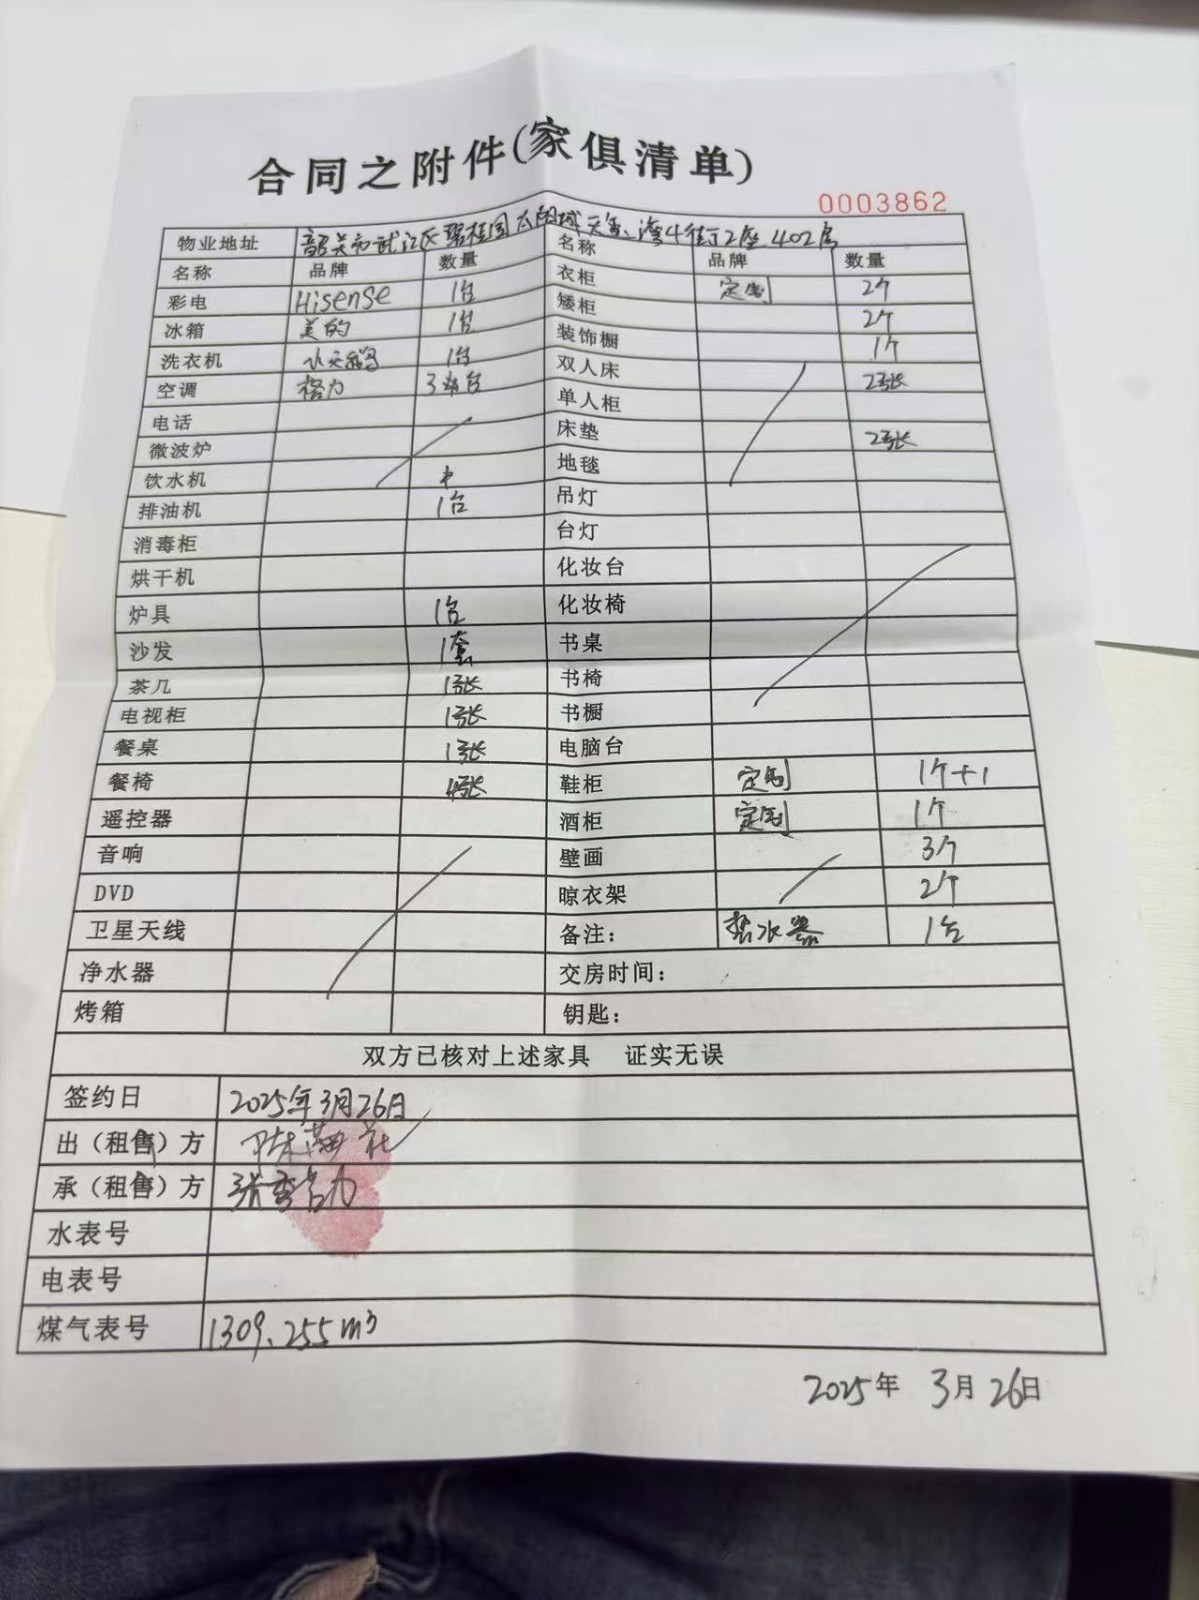 合同之附件(家俱清单)
0003862
物业地址 韶关市武江区碧桂园太阳城天玺湾4街12座402房
名称 品牌 数量 名称 品牌 数量
彩电 Hisense 1台 衣柜 定制 2个
冰箱 美的 1台 矮柜 2个
洗衣机 小天鹅 1台 装饰橱 1个
空调 格力 3台 双人床 2张
电话 单人柜
微波炉 床垫 2张
饮水机 地毯
排油机 1台 吊灯
消毒柜 台灯
烘干机 化妆台
炉具 1台 化妆椅
沙发 1套 书桌
茶几 1张 书椅
电视柜 1张 书橱
餐桌 1张 电脑台
餐椅 4张 鞋柜 定制 1个+1
遥控器 酒柜 定制 1个
音响 壁画 3个
DVD 晾衣架 2个
卫星天线 备注: 热水器 1台
净水器 交房时间:
烤箱 钥匙:
双方已核对上述家具 证实无误
签约日 2025年3月26日
出(租售)方
承(租售)方 张
水表号
电表号
煤气表号 1309.255m³
2025年 3月26日